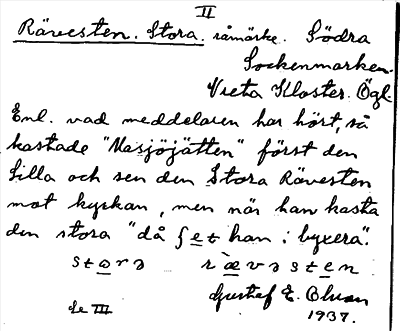 II
Rävesten. Stora. råmärke. Södra
Sockenmarken.
Vreta Kloster. Ögl.
Enl. vad meddelaren har hört, så
kastade "Vasjöjätten" först den
Lilla och sen den Stora Rävesten
mot kyrkan, men när han kasta
den stora "då fet han i byxera".
Gustaf E. Bluon
se III 1937.